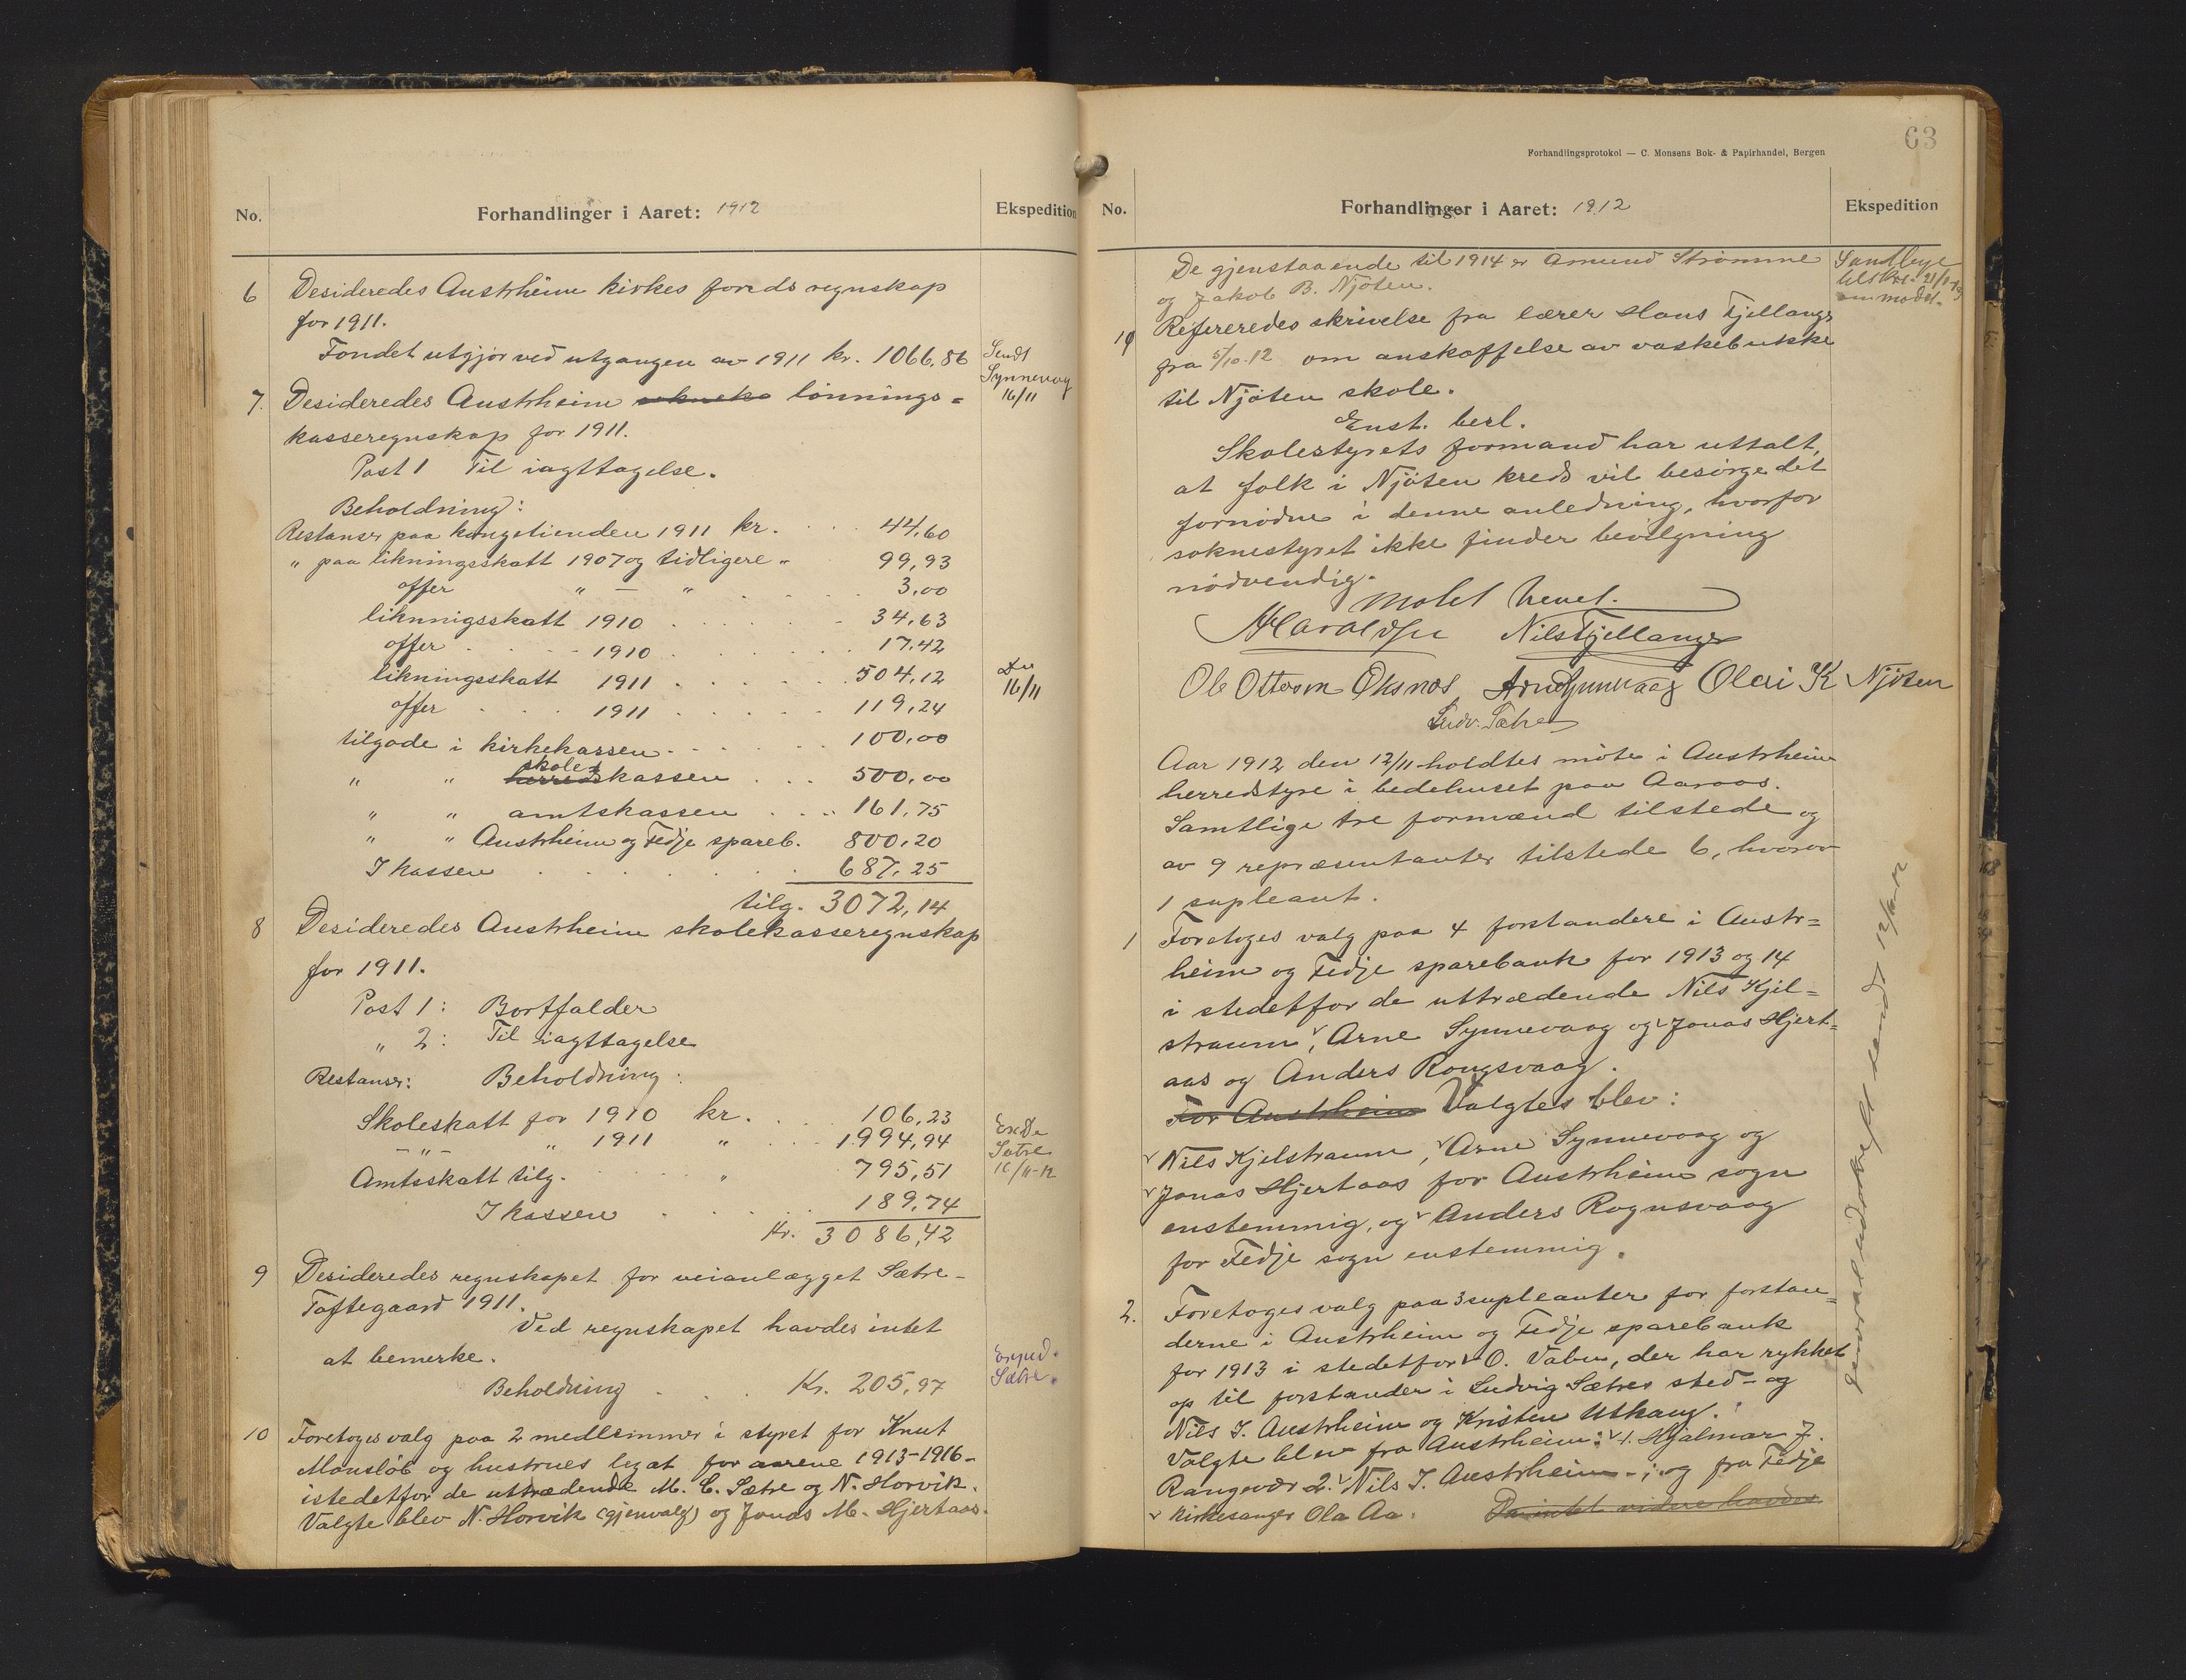 No.
Forhandlinger i Aaret: 1912
Ekspedition
6 Desideredes Austrheim kirkes fonds regnskap
for 1911.
Fondet utgjør ved utgangen av 1911 kr. 1066,86
Sendt
Synnevag
16/11
7. Desideredes Austrheim lønnings=
kasseregnskap for 1911.
Post 1 Til iagttagelse.
Beholdning:
Restanser paa kongetienden 1911 kr. 44,60
" paa likningsskatt 1907 og tidligere " 99,93
offer " — " 3,00
liknnigsskatt 1910 34,63
offer 1910 17,42
likningsskatt 1911 504,12
offer 1911 119,24
Do
16/11
tilgode i kirkekassen 100,00
" " herredskassen skole 500,00
" " amtskassen 161,75
" " Austrheim og Fedje spareb. 800,20
I kassen 687,25
tilg. 3072,14
8 Desideredes Austrheim skolekasseregnskap
for 1911.
Post 1: Bortfalder
" 2: Til iagttagelse
Restanser: Beholdning:
Skoleskatt for 1910 kr. 106,23
— " — " 1911 " 1994,94
Amtsskatt tilg. " 795,51
I kassen 189,74
Kr. 3086,42
Sætre
16/11-12
9 Desideredes regnskapet for veianlægget Sætre-
Toftegaard 1911.
Ved regnskapet havdes intet
at bemerke.
Beholdning Kr. 205,97
Exped.
Sætre.
10 Foretoges valg paa 2 medlemmer i styret for Knut
Monsløb og hustrues legat for aarene 1913-1916-
istedetfor de uttrædende M. E. Sætre og N. Horvik.
Valgte blev N. Horvik (gjenvalg) og Jonas M. Hjertaas.
63
Forhandlingsprotokol — C. Monsens Bok- & Papirhandel, Bergen
No.
Forhandlinger i Aaret: 1912
Ekspedition
De gjenstaaende til 1914 er Amund Strømme
og Jakob B. Njøten.
Refereredes skrivelse fra lærer Hans Fjellanger
fra 5/10-12 om anskaffelse av vaskebutikke
til Njøten skole.
Enst. besl.
Skolestyrets formand har uttalt,
at folk i Njøten kreds vil besørge det
fornødne i denne anledning, hvorfor
soknestyret ikke finder bevilgning
nødvendig.
Møtet hevet.
Haraldsen Nils Fjellanger
Ole Ottersen Oksnes Arne Synnevaag Olai K Njøten
Ludv. Sætre
Aar 1912 den 12/11 holdtes møte i Austrheim
herredstyre i bedehuset paa Aaraas.
Samtlige tre formænd tilstede og
av 9 repræsentanter tilstede 6, hvorav
1 supleant.
1 Foretoges valg paa 4 forstandere i Austr=
heim og Fedje sparebank for 1913 og 14
i stedetfor de uttrædende Nils Kjel=
straum, Arne Synnevaag og Jonas Hjert=
aas og Anders Rongsvaag.
For Austrheim Valgtes blev:
Nils Kjelstraum, Arne Synnevaag og
Jonas Hjertaas for Austrheim sogn
enstemmig, og Anders Rognsvaag
for Fedje sogn enstemmig.
2. Foretoges valg paa 3 supleanter for forstan=
derne i Austrheim og Fedje sparebank
for 1913 i stedetfor O. Vabø, der har rykket
op til forstander i Ludvig Sætres sted - og
Nils J. Austrheim og Kristen Utkaug.
Valgte blev fra Austrheim: 1. Hjalmar J.
Rangøvær 2. Nils J. Austrheim -; og fra Fedje
kirkesanger Ola Aa. Da intet videre havdes